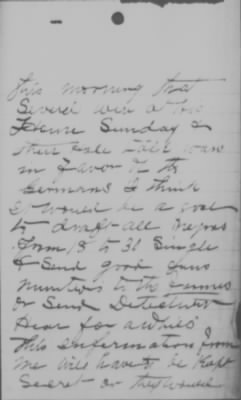 this morning that
Several were at his
Home Sunday &
their hole talk was
in favor of the
Germans I think
it would be a good
to draft all Negros
from 18 to 31 Single
& Send good
to the
or Send Detectives
hear for awhile
This information from
me will have to be kept
Secret or they would